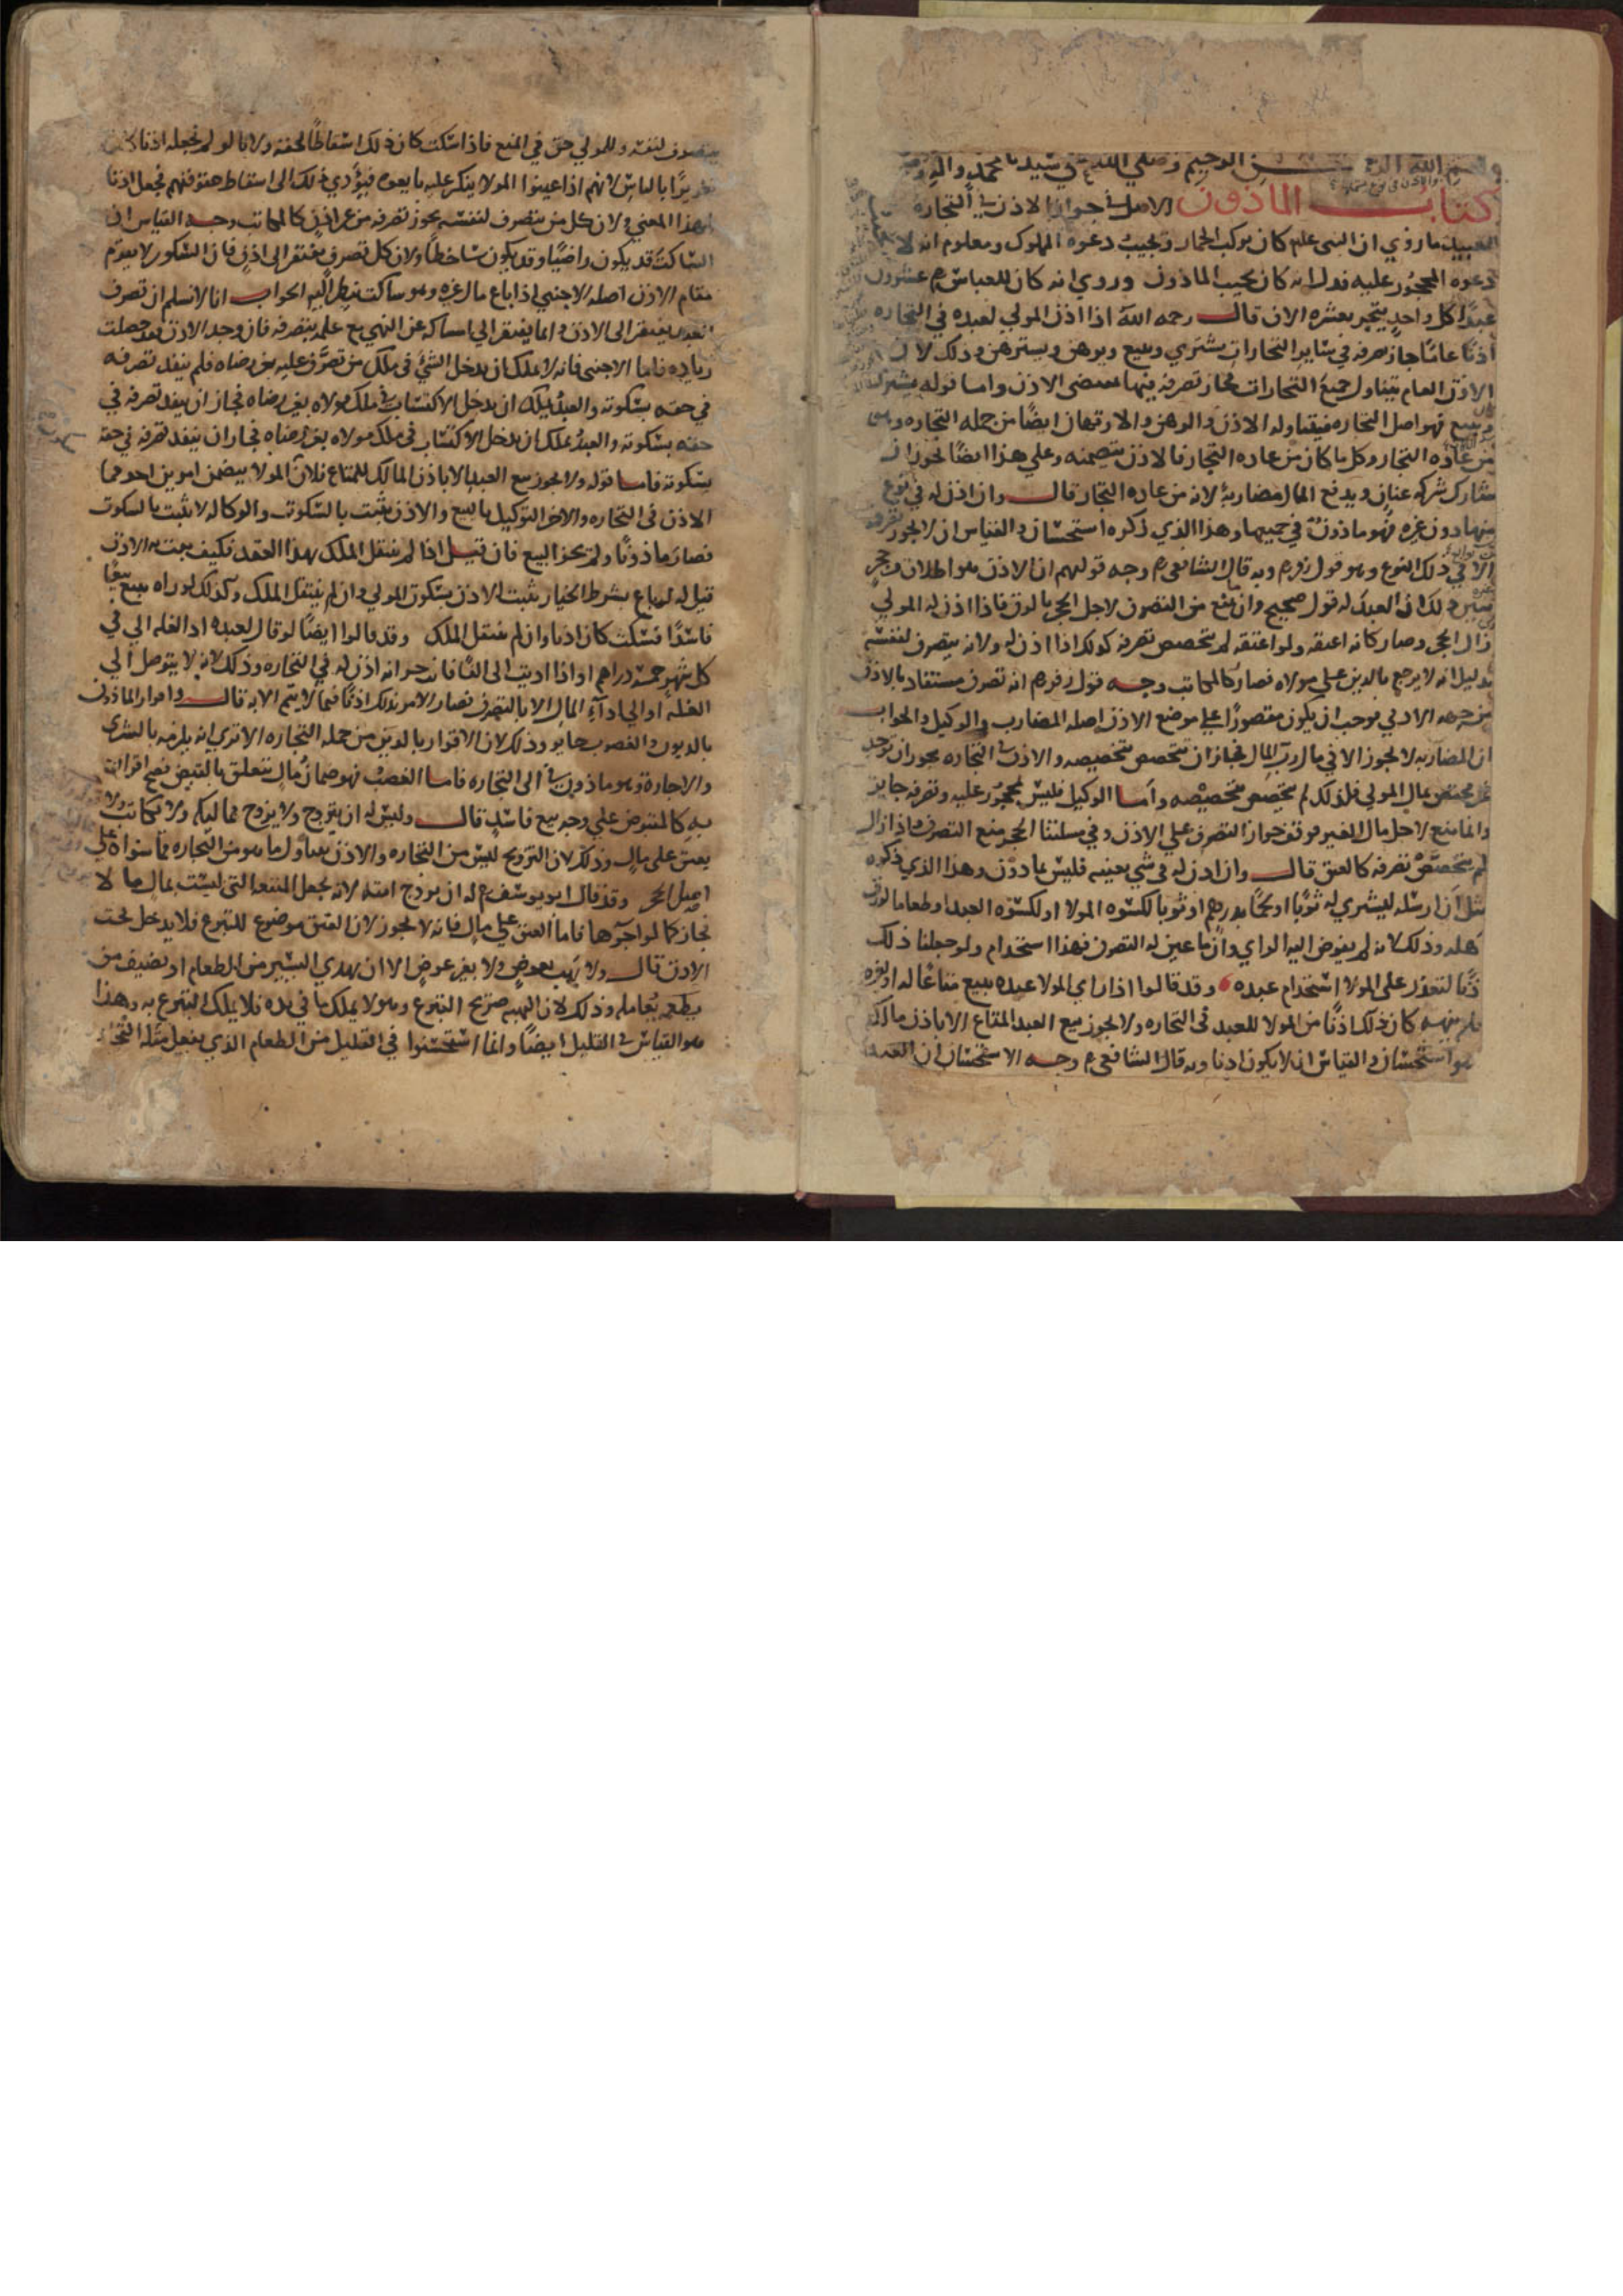 بسم الله الرحمن الرحيم وصلى الله على سيدنا محمد واله
كتاب الماذون الاصل في جواز الاذن في التجاره
للعبيد ما روي ان النبي علم كان يركب الحمار ويجيب دعوه المملوك ومعلوم انه لا
دعوه المحجور عليه فدل انه كان يجيب الماذون وروي انه كان للعباس رم عشرون
عبدا كل واحد يتجر بعشره الاف قال رحمه الله اذا اذن المولي لعبده في التجاره
اذنا عاما جاز تصرفه في ساير التجارات يشتري ويبيع ويرهن ويسترهن وذلك لان
الاذن العام يتناول جميع التجارات فجاز تصرفه فيها بمقتضى الاذن واما قوله يشتري
ويبيع فهو اصل التجاره فيتناوله الاذن والرهن والارتهان ايضا من جمله التجاره
من عاده التجار وكل ما كان من عاده التجار فالاذن يتضمنه وعلي هذا ايضا يجوز ان
يشارك شركه عنان ويدفع المال مضاربة لانه من عاده التجار قال وان اذن له في نوع
منها دون غيره فهو ماذون في جميعها وهذا الذي ذكره استحسان والقياس ان لا يجوز تصرفه
الا في ذلك النوع وهو قول زفر رم وبه قال الشافعي رم وجه قولهم ان الاذن هو اطلاق من حجر
لك ان العبد له قول صحيح وان منع من التصرف لاجل الحجر بالرق فاذا اذن له المولي
زال الحجر وصار كانه اعتقه ولو اعتقه لم يتخصص تصرفه كذلك اذا اذن له ولانه يتصرف لنفسه
بدليل انه لا يرجع بالدين علي مولاه فصار كالمكاتب وجه قول زفر رم انه تصرف مستفاد بالاذن
من جهه الادمي فوجب ان يكون مقصورا علي موضع الاذن اصله المضارب والوكيل والجواب
ان المضاربه لا تجوز الا في مال رب المال فجاز ان تتخصص بتخصيصه والاذن في التجاره يجوز ان توجد
غير مختص بمال المولي فلذلك لم يتخصص بتخصيصه واما الوكيل فليس بمحجور عليه وتصرفه جايز
وانما منع لاجل مال الغير فوقف جواز التصرف علي الاذن وفي مسلتنا الحجر منع التصرف فاذا زال
لم يتخصص تصرفه كالعتق قال وان اذن له في شي بعينه فليس بماذون وهذا الذي ذكره
مثل ان ارسله ليشتري له ثوبا او لحما بدرهم او ثوبا لكسوه المولا او لكسوه العبد او طعاما لرزق
اهله وذلك لانه لم يفوض اليه الراي وان ما عين له التصرف فهذا استخدام ولو جعلنا ذلك
اذنا لتعذر على المولا استخدام عبده وقد قالوا اذا راى المولا عبده يبيع متاعا له او لغيره
فلم ينهه كان ذلك اذنا من المولا للعبد في التجاره ولا يجوز بيع العبد المتاع الا باذن مالكه
هو استحسان والقياس ان لا يكون اذنا وبه قال الشافعي رم وجه الاستحسان ان العبد
يتصرف لنفسه وللمولي حق في المنع فاذا سكت كان ذلك اسقاطا لحقه ولانا لو لم نجعله اذنا كان
تغريرا بالناس لانهم اذا عينوا المولا ينكر عليه بايعوه فيؤدي ذلك الى اسقاط حقوقهم فجعل اذنا
لهذا المعني ولان كل من يتصرف لنفسه يجوز تصرفه من غير اذن كالمكاتب وجه القياس ان
الساكت قد يكون راضيا وقد يكون ساخطا ولان كل تصرف يفتقر الى اذن فان السكوت لا يقوم
مقام الاذن اصله الاجنبي اذا باع مال غيره وهو ساكت ينظر اليه الجواب انا لا نسلم ان تصرف
العبد يفتقر الى الاذن وانما يفتقر الي امساكه عن النهي مع علمه بتصرفه فان وجد الاذن فقد حصلت
زياده فاما الاجنبي فانه لا يملك ان يدخل الشي في ملك من تصرف عليه بغير رضاه فلم ينفذ تصرفه
في حقه بسكوته والعبد يملك ان يدخل الاكتساب في ملك مولاه بغير رضاه فجاز ان ينفذ تصرفه في
حقه بسكوته والعبد يملك ان يدخل الاكتساب في ملك مولاه بغير رضاه فجاز ان ينفذ تصرفه في حقه
بسكوته فاما قوله ولا يجوز بيع العبد الا باذن المالك للمتاع فلان المولا يتضمن امرين احدهما
الاذن في التجاره والاخر التوكيل بالبيع والاذن يثبت بالسكوت والوكاله لا تثبت بالسكوت
فصار ماذونا ولم يجز البيع فان قيل اذا لم ينتقل الملك بهذا العقد فكيف يثبت به الاذن
قيل له لو باع بشرط الخيار يثبت الاذن بسكوت المولي وان لم ينتقل الملك وكذلك لو راه يبيع بيعا
فاسدا فسكت كان اذنا وان لم ينتقل الملك وقد قالوا ايضا لو قال لعبده اد الغله الي في
كل شهر خمسه دراهم او اذا اديت الى الفا فانت حر انه اذن له في التجاره وذلك لانه لا يتوصل الي
الغله او الي اداء المال الا بالتصرف فصار الامر بذلك اذنا فيما لا يتم الا به قال واقرار الماذون
بالديون والغصوب جايز وذلك لان الاقرار بالدين من جمله التجاره الا تري انه يلزمه بالشرى
والاجارة وهو ماذون في التجاره فاما الغصب فهو ضمان مال يتعلق بالقبض فصح اقراره
به كالمقبوض علي وجه بيع فاسد قال وليس له ان يتزوج ولا يزوج مماليكه ولا يكاتب ولا
يعتق على مال وذلك لان التزويج ليس من التجاره والاذن يتناول ما هو من التجاره فما سواه علي
اصل الحجر وقد قال ابو يوسف رم له ان يزوج امته لانه يجعل المنفعه التي ليست بمال مالا
فجاز كما لو اجرها فاما العتق علي مال فانه لا يجوز لان العتق موضوع للتبرع فلا يدخل تحت
الاذن قال ولا يهب بعوض ولا بغير عوض الا ان يهدي اليسير من الطعام او يضيف من
يطعمه يعامله وذلك لان الهبه صريح التبرع وهو لا يملك ما في يده فلا يملك التبرع به وهذا
هو القياس في القليل ايضا وانما استحسنوا في القليل من الطعام الذي يفعل مثله التجار